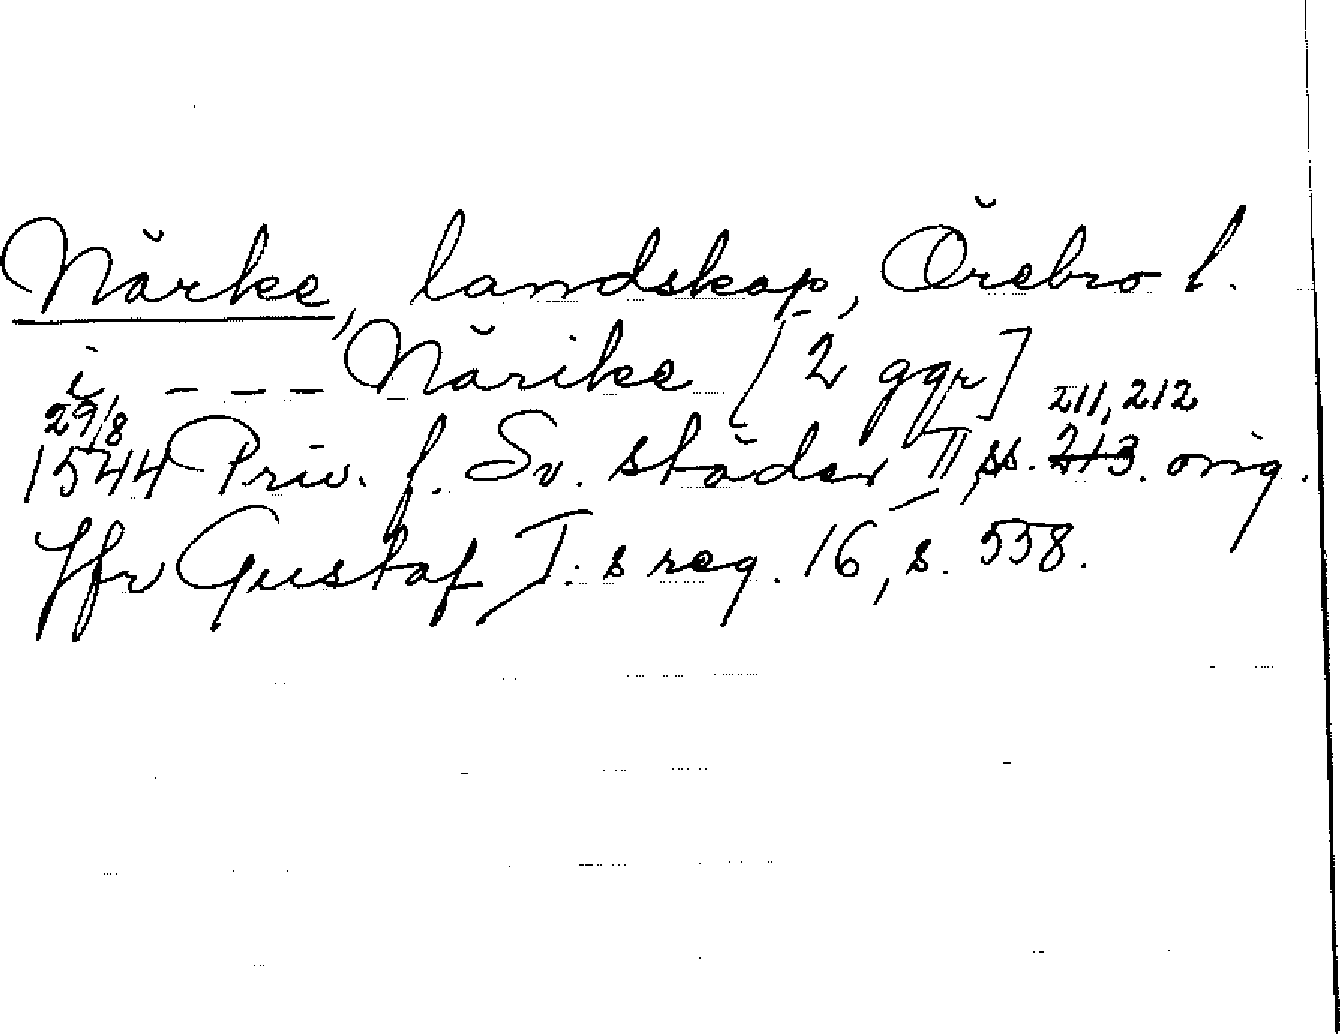 Närke, landskap, Örebro l.
i - - - Närike [2 ggr]
29/8 211, 212
1544 Priv. f. Sv. städer II, ss. 213. orig.
Jfr Gustaf I:s reg. 16, s. 558.